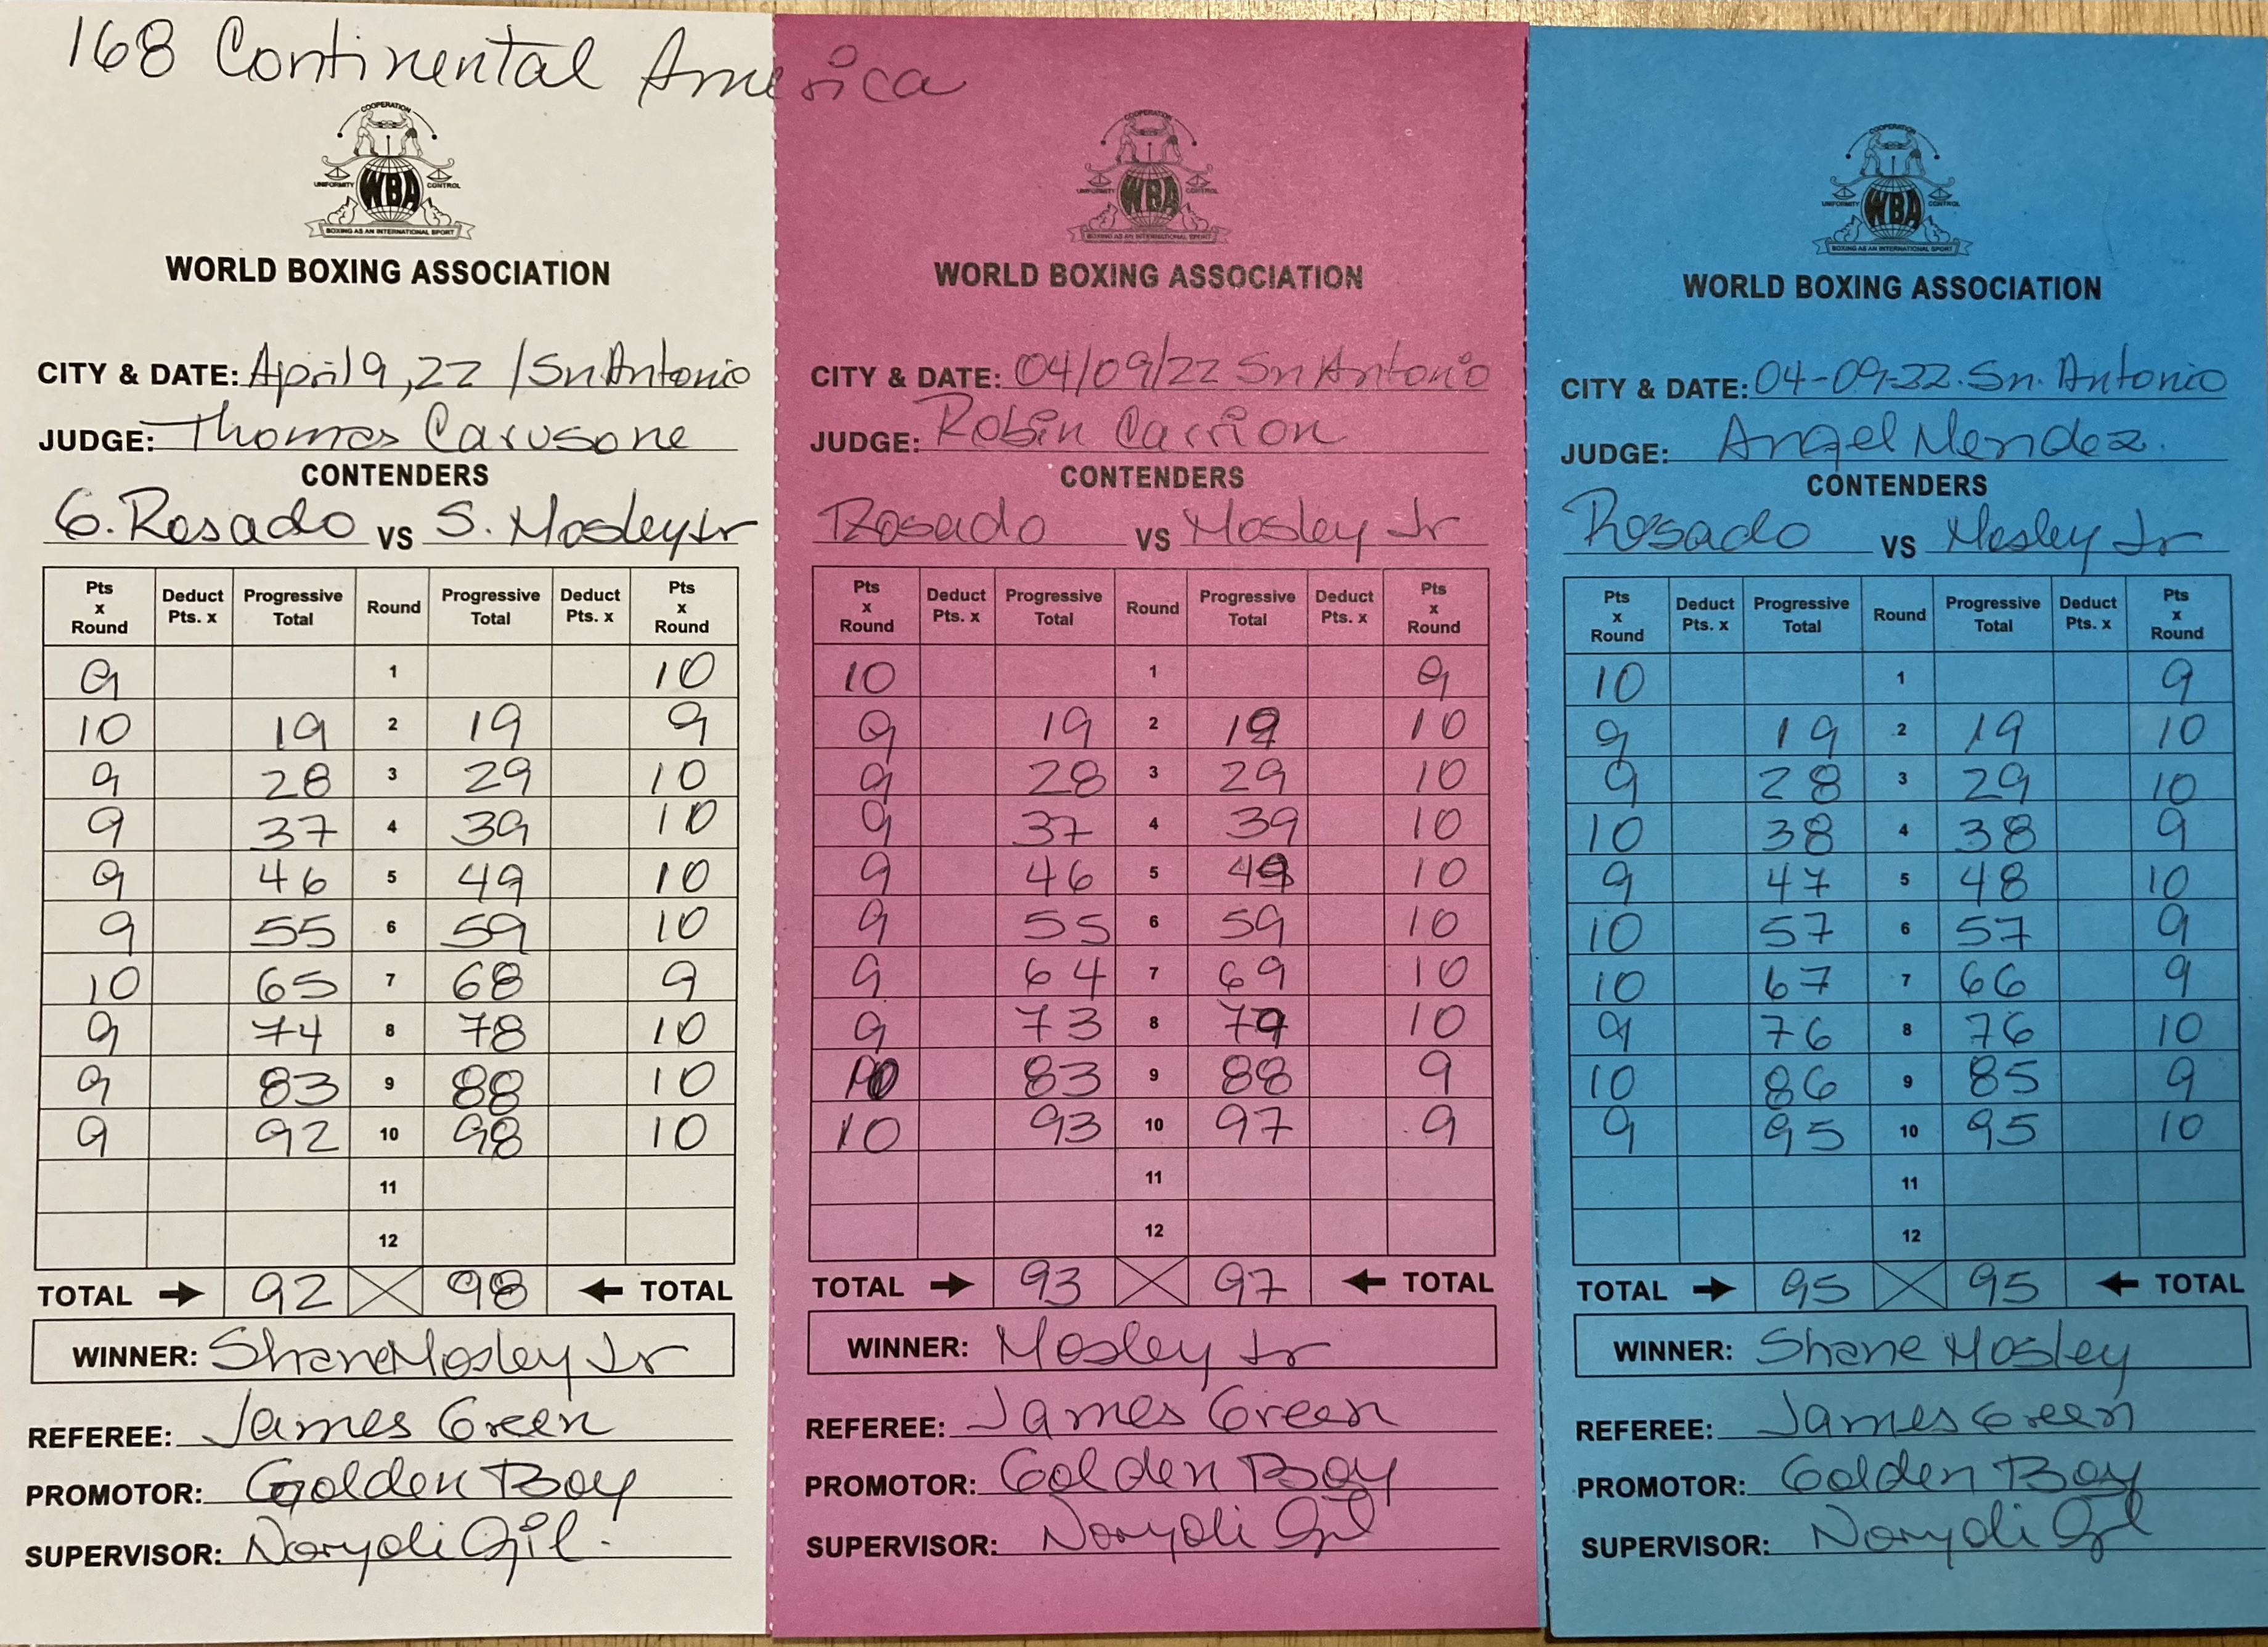 168 Continental America
COOPERATION
UNIFORMITY WBA CONTROL
BOXING AS AN INTERNATIONAL SPORT
WORLD BOXING ASSOCIATION
CITY & DATE: April 9, 22 / Sn Antonio
JUDGE: Thomas Carusone
CONTENDERS
G. Rosado VS S. Mosley Jr
Pts x Round Deduct Pts. x Progressive Total Round Progressive Total Deduct Pts. x Pts x Round
9 1 10
10 19 2 19 9
9 28 3 29 10
9 37 4 39 10
9 46 5 49 10
9 55 6 59 10
10 65 7 68 9
9 74 8 78 10
9 83 9 88 10
9 92 10 98 10
11
12
TOTAL 92 98 TOTAL
WINNER: Shane Mosley Jr
REFEREE: James Green
PROMOTOR: Golden Boy
SUPERVISOR: Noryoli Gil.
COOPERATION
UNIFORMITY WBA CONTROL
BOXING AS AN INTERNATIONAL SPORT
WORLD BOXING ASSOCIATION
CITY & DATE: 04/09/22 Sn Antonio
JUDGE: Robin Carrion
CONTENDERS
Rosado VS Mosley Jr
Pts x Round Deduct Pts. x Progressive Total Round Progressive Total Deduct Pts. x Pts x Round
10 1 9
9 19 2 19 10
9 28 3 29 10
9 37 4 39 10
9 46 5 49 10
9 55 6 59 10
9 64 7 69 10
9 73 8 79 10
10 83 9 88 9
10 93 10 97 9
11
12
TOTAL 93 97 TOTAL
WINNER: Mosley Jr
REFEREE: James Green
PROMOTOR: Golden Boy
SUPERVISOR: Noryoli Gil
COOPERATION
UNIFORMITY WBA CONTROL
BOXING AS AN INTERNATIONAL SPORT
WORLD BOXING ASSOCIATION
CITY & DATE: 04-09-22. Sn. Antonio
JUDGE: Angel Mendez.
CONTENDERS
Rosado VS Mosley Jr
Pts x Round Deduct Pts. x Progressive Total Round Progressive Total Deduct Pts. x Pts x Round
10 1 9
9 19 2 19 10
9 28 3 29 10
10 38 4 38 9
9 47 5 48 10
10 57 6 57 9
10 67 7 66 9
9 76 8 76 10
10 86 9 85 9
9 95 10 95 10
11
12
TOTAL 95 95 TOTAL
WINNER: Shane Mosley
REFEREE: James Green
PROMOTOR: Golden Boy
SUPERVISOR: Noryoli Gil